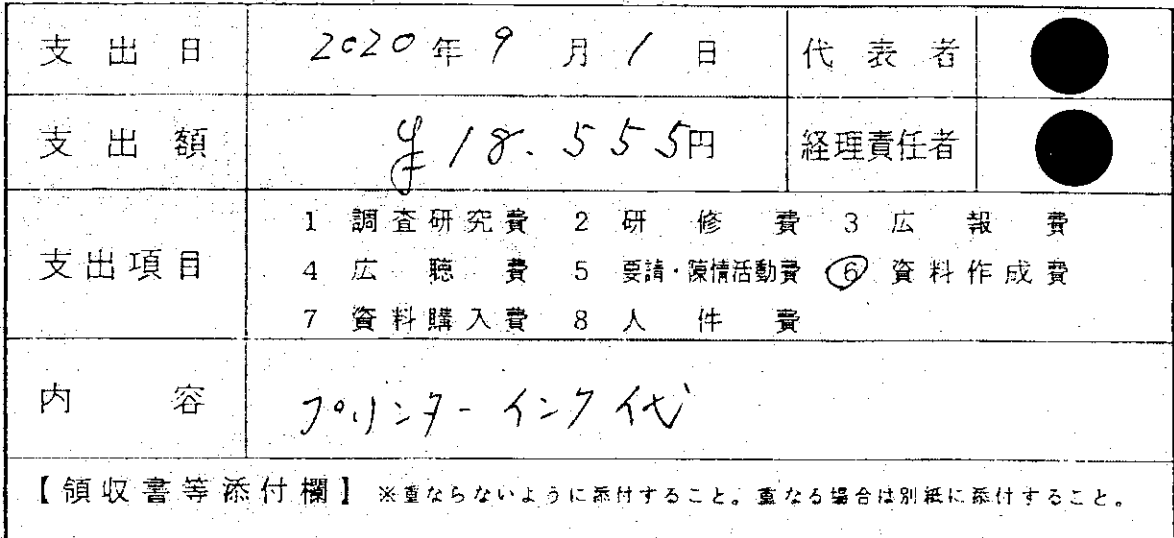 支出日 2020年9月1日 代表者
支出額 ¥18.555円 経理責任者
支出項目
1 調査研究費 2 研修費 3 広報費
4 広聴費 5 要請・陳情活動費 6 資料作成費
7 資料購入費 8 人件費
内容 プリンターインク代
【領収書等添付欄】 ※重ならないように添付すること。重なる場合は別紙に添付すること。